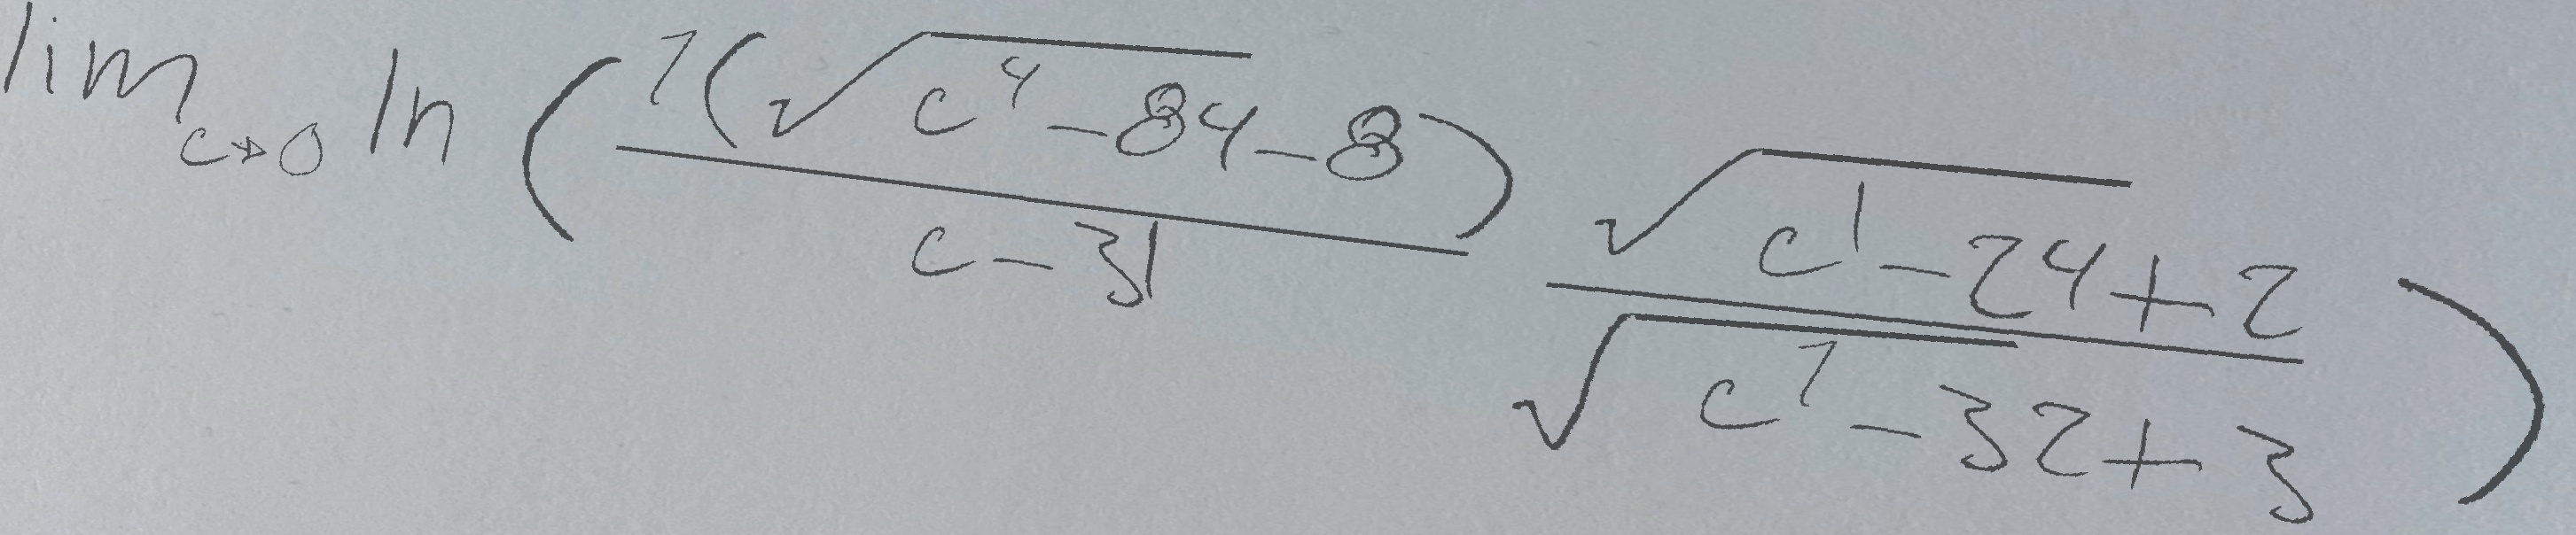 \lim_{c \to 0} \ln \left( \frac{7(\sqrt{c^4-84}-8)}{c-31} \frac{\sqrt{c^1-24}+2}{\sqrt{c^7-32}+3} \right)